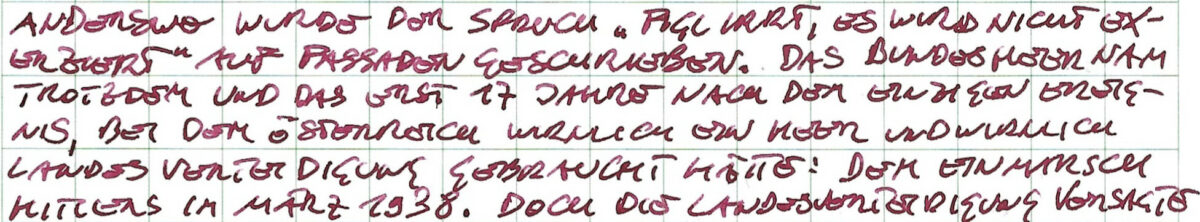 ANDERSWO WURDE DER SPRUCH „FIGL IRRT, ES WIRD NICHT EX-
ERZIERT“ AUF FASSADEN GESCHRIEBEN. DAS BUNDESHEER KAM
TROTZDEM UND DAS ERST 17 JAHRE NACH DEM EINZIGEN EREIG-
NIS, BEI DEM ÖSTERREICH WIRKLICH EIN HEER UND WIRKLICH
LANDESVERTEIDIGUNG GEBRAUCHT HÄTTE: DEM EINMARSCH
HITLERS IM MÄRZ 1938. DOCH DIE LANDESVERTEIDIGUNG VERSAGTE